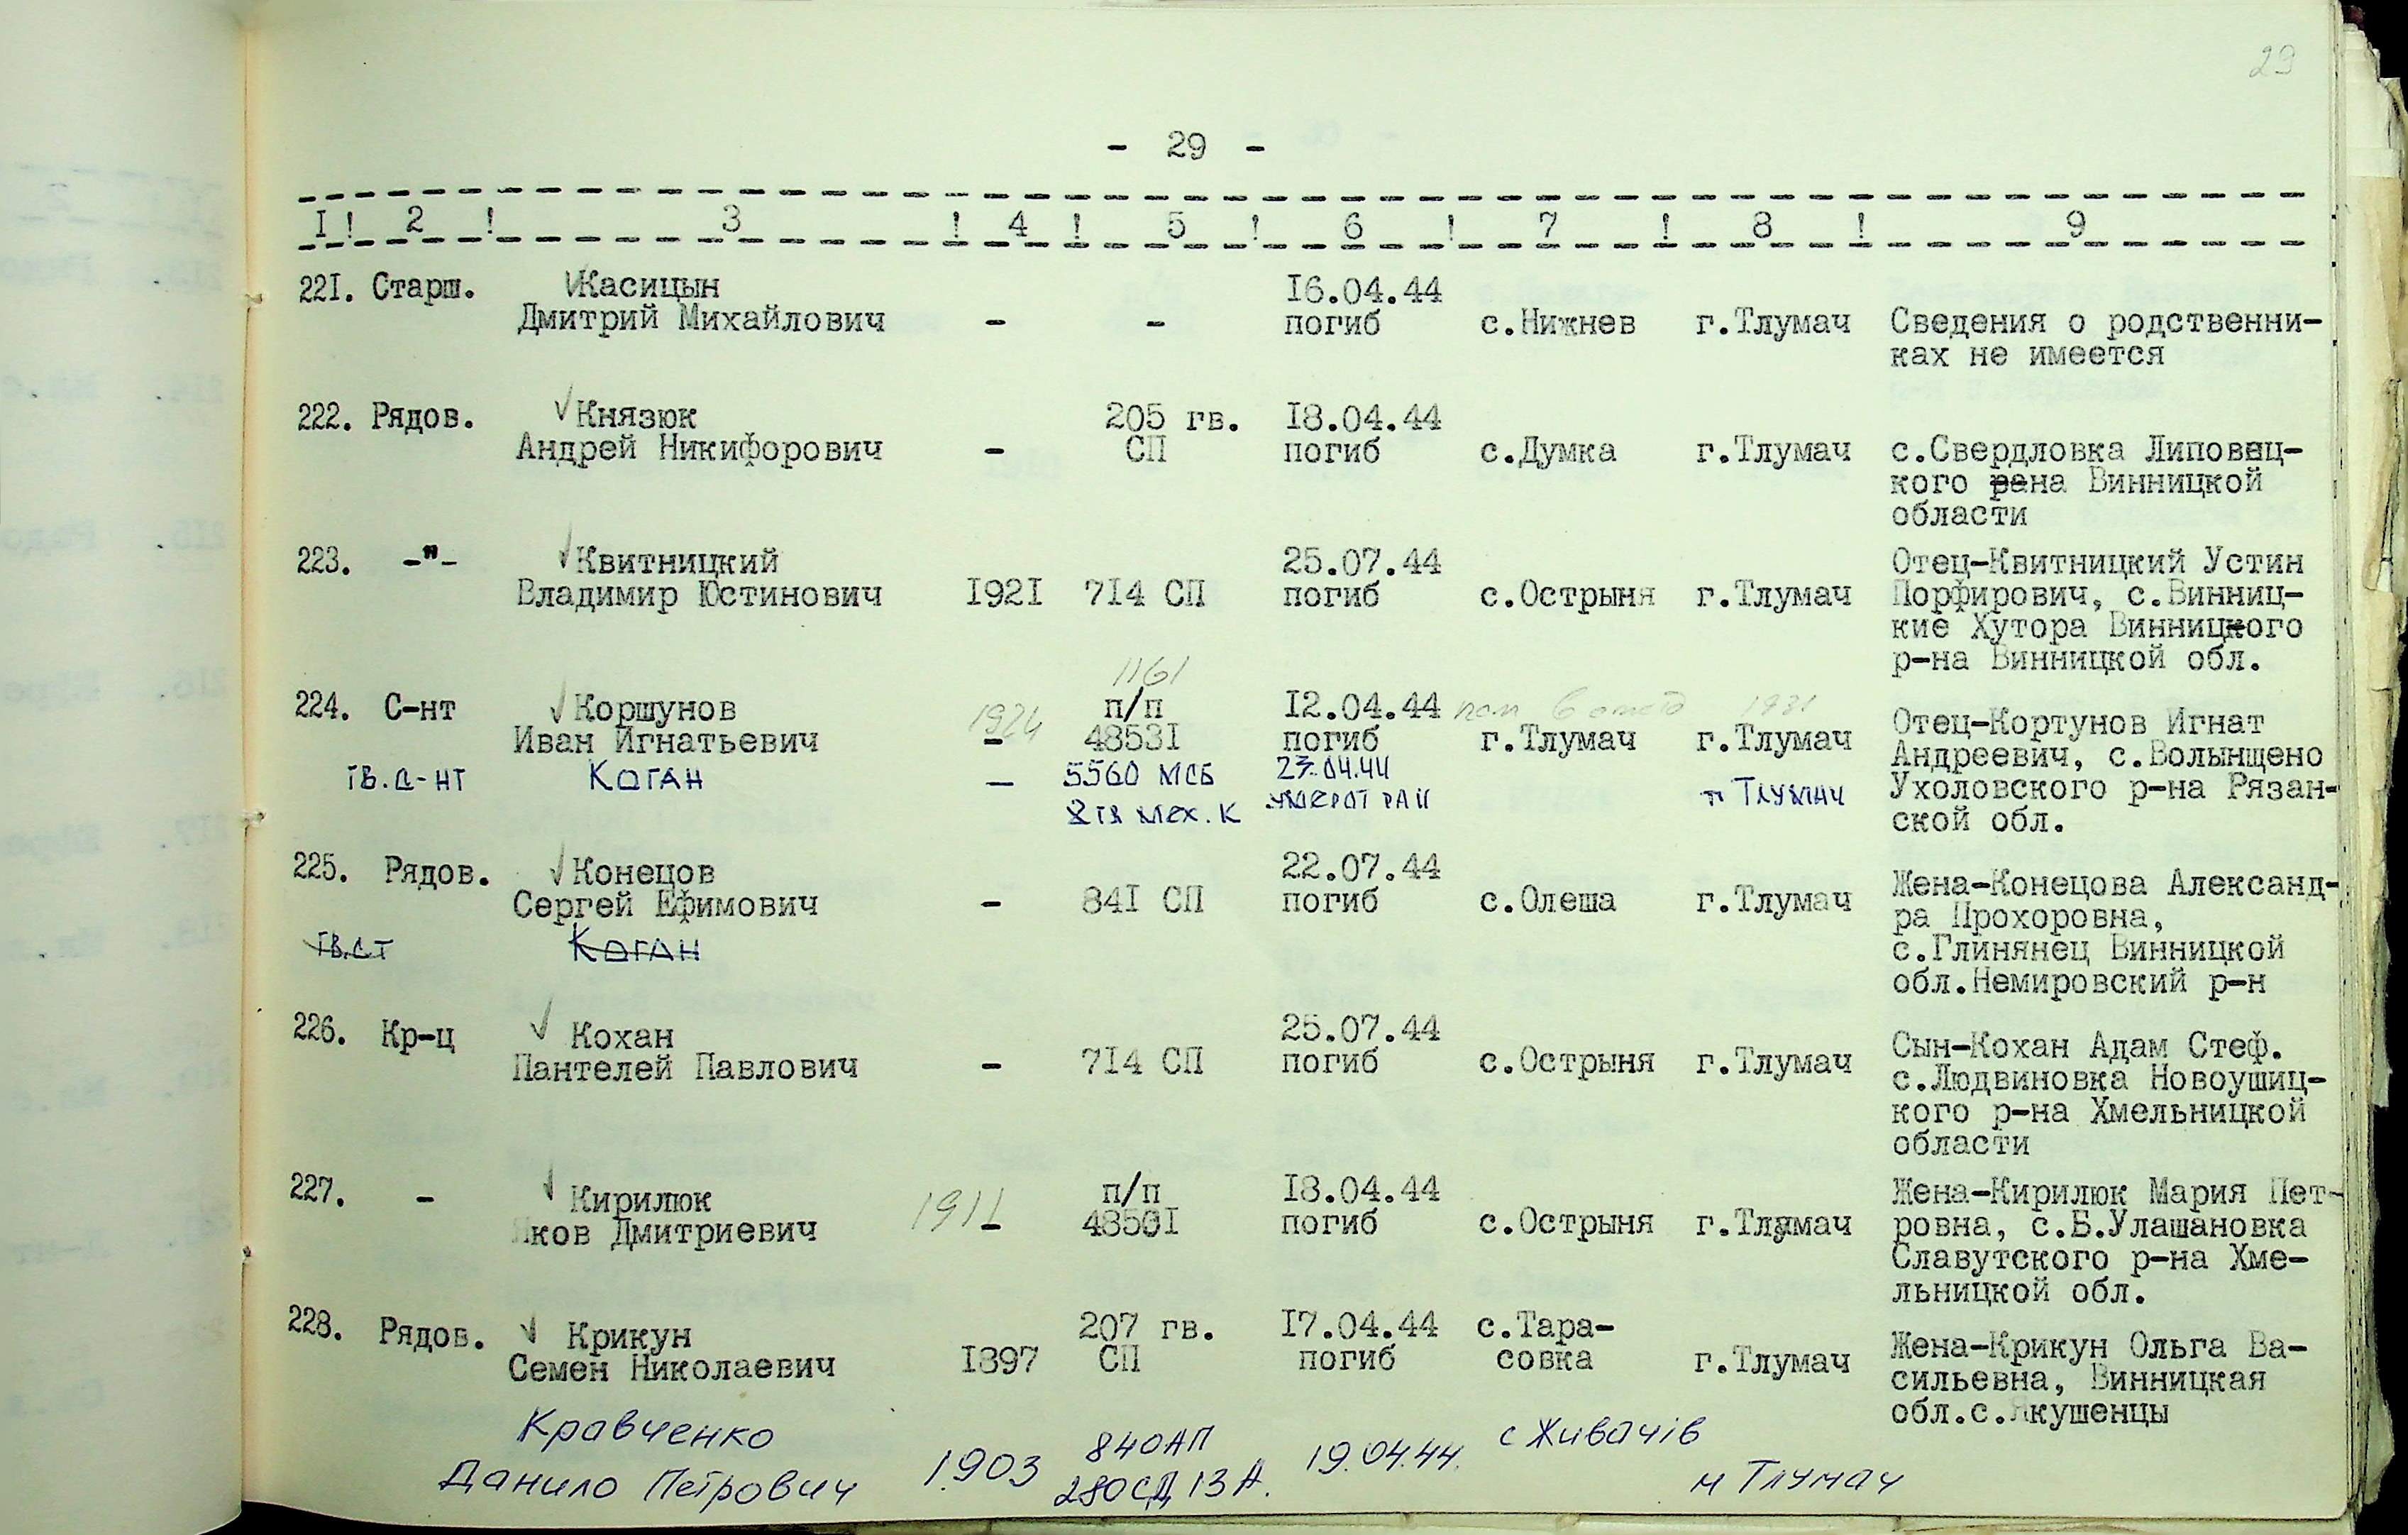 29
- 29 -
I ! 2 ! 3 ! 4 ! 5 ! 6 ! 7 ! 8 ! 9
221. Старш. Жасицын 16.04.44
Дмитрий Михайлович - - погиб с.Нижнев г.Тлумач Сведения о родственни-
ках не имеется
222. Рядов. Князюк 205 гв. 18.04.44
Андрей Никифорович - СП погиб с.Думка г.Тлумач с.Свердловка Липовец-
кого рана Винницкой
области
223. -"- Квитницкий 25.07.44 Отец-Квитницкий Устин
Владимир Юстинович 1921 714 СП погиб с.Острыня г.Тлумач Порфирович, с.Винниц-
кие Хутора Винницкого
р-на Винницкой обл.
1161
224. С-нт Коршунов 1924 п/п 12.04.44 1981 Отец-Кортунов Игнат
Иван Игнатьевич - 48531 погиб г.Тлумач г.Тлумач Андреевич, с.Волынщено
ГВ.С-НТ КОГАН — 5560 МСБ 23.04.44 ТЛУМАЧ Ухоловского р-на Рязан-
МЕХ. К УМЕР ОТ РАН ской обл.
225. Рядов. Конецов 22.07.44 Жена-Конецова Александ-
Сергей Ефимович - 841 СП погиб с.Олеша г.Тлумач ра Прохоровна,
ГВ.СТ КОГАН с.Глинянец Винницкой
обл.Немировский р-н
226. Кр-ц Кохан 25.07.44 Сын-Кохан Адам Стеф.
Пантелей Павлович - 714 СП погиб с.Острыня г.Тлумач с.Людвиновка Новоушиц-
кого р-на Хмельницкой
области
227. - Кирилюк 1911 п/п 18.04.44 Жена-Кирилюк Мария Пет-
Яков Дмитриевич - 48501 погиб с.Острыня г.Тлумач ровна, с.Б.Улашановка
Славутского р-на Хме-
льницкой обл.
228. Рядов. Крикун 207 гв. 17.04.44 с.Тара-
Семен Николаевич 1897 СП погиб совка г.Тлумач Жена-Крикун Ольга Ва-
сильевна, Винницкая
обл.с.Якушенцы
Кравченко 840АП с Живачів
Данило Петрович 1903 280СД 13 А. 19.04.44. м Тлумач